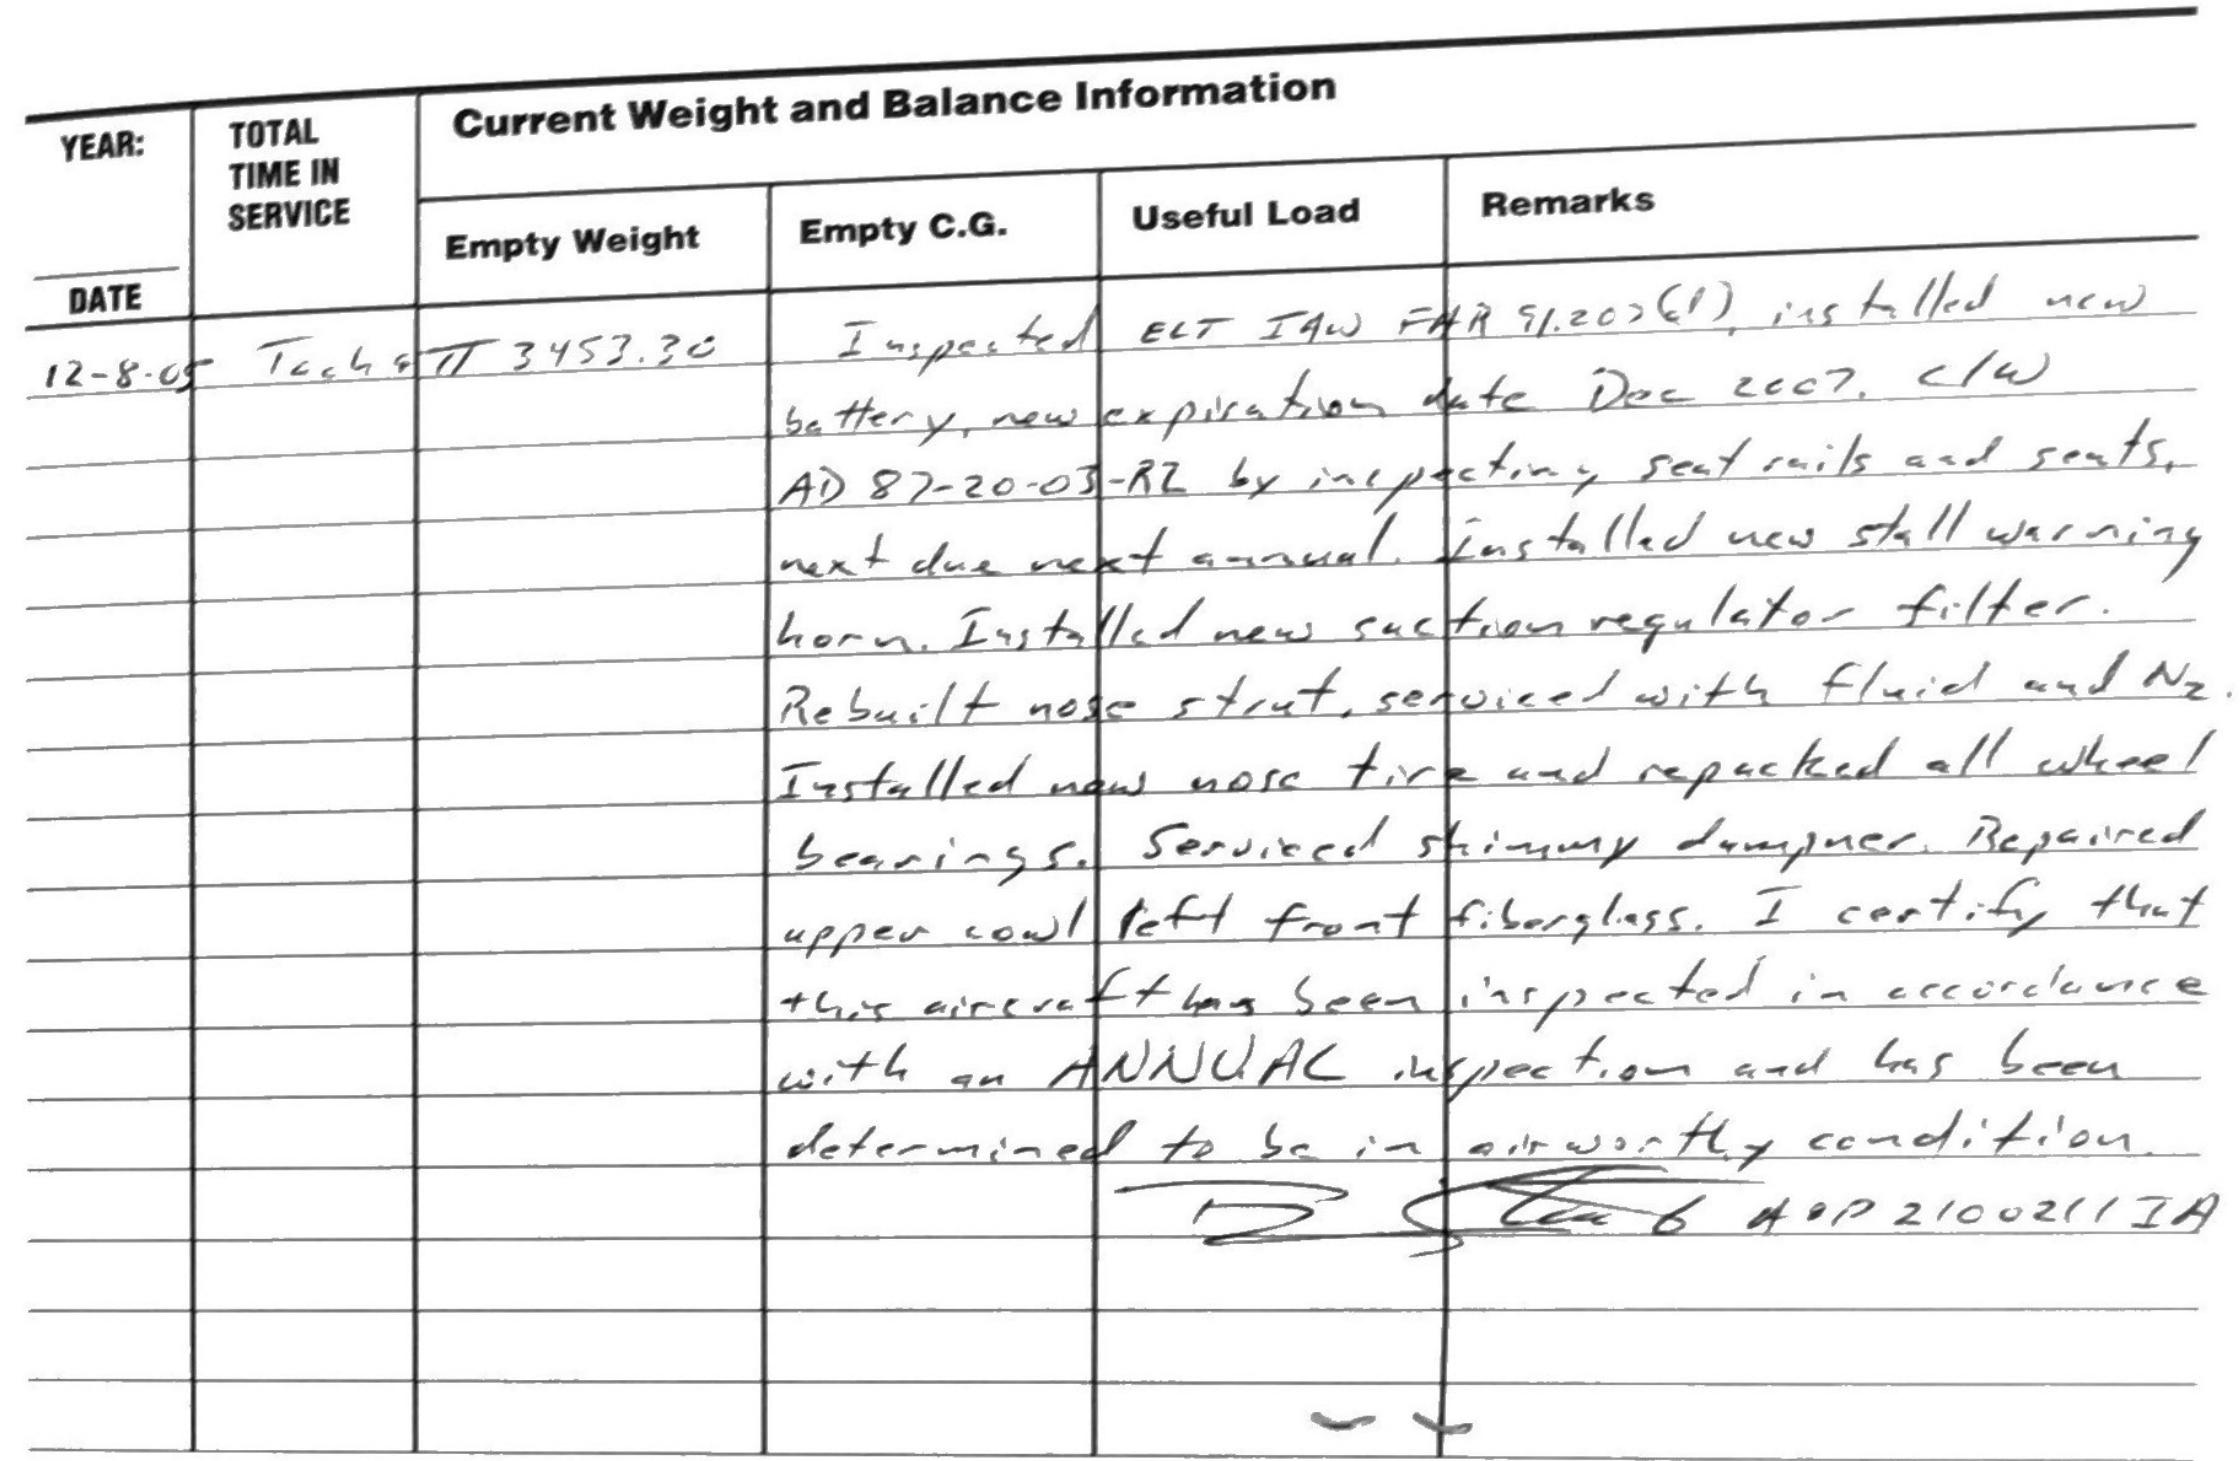 Current Weight and Balance Information
YEAR:
TOTAL
TIME IN
SERVICE
Empty Weight
Empty C.G.
Useful Load
Remarks
DATE
12-8-05 Tach & TT 3453.30 Inspected ELT IAW FAR 91.207(d), installed new
battery, new expiration date Dec 2007. C/W
AD 87-20-03-R2 by inspecting seat rails and seats,
next due next annual. Installed new stall warning
horn. Installed new suction regulator filter.
Rebuilt nose strut, serviced with fluid and N2.
Installed new nose tire and repacked all wheel
bearings. Serviced shimmy dampner. Repaired
upper cowl left front fiberglass. I certify that
this aircraft has been inspected in accordance
with an ANNUAL inspection and has been
determined to be in airworthy condition.
A&P 2100211 IA